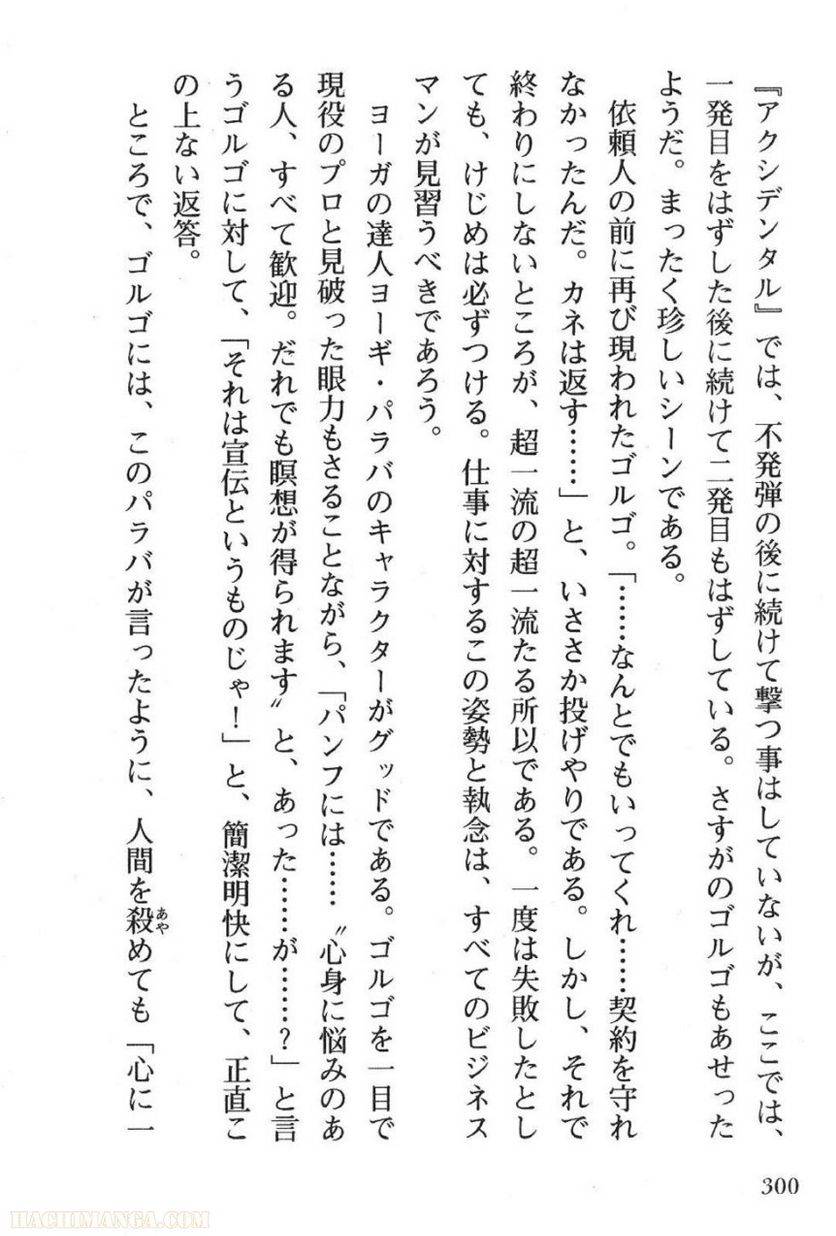 『アクシデンタル』では、不発弾の後に続けて撃つ事はしていないが、ここでは、
一発目をはずした後に続けて二発目もはずしている。さすがのゴルゴもあせった
ようだ。まったく珍しいシーンである。
依頼人の前に再び現われたゴルゴ。「……なんとでもいってくれ……契約を守れ
なかったんだ。カネは返す……」と、いささか投げやりである。しかし、それで
終わりにしないところが、超一流の超一流たる所以である。一度は失敗したとし
ても、けじめは必ずつける。仕事に対するこの姿勢と執念は、すべてのビジネス
マンが見習うべきであろう。
ヨーガの達人ヨーギ・パラバのキャラクターがグッドである。ゴルゴを一目で
現役のプロと見破った眼力もさることながら、「パンフには……〝心身に悩みのあ
る人、すべて歓迎。だれでも瞑想が得られます〟と、あった……が……？」と言
うゴルゴに対して、「それは宣伝というものじゃ！」と、簡潔明快にして、正直こ
の上ない返答。
ところで、ゴルゴには、このパラバが言ったように、人間を殺めても「心に一
あや
300
HACHIMANGA.COM